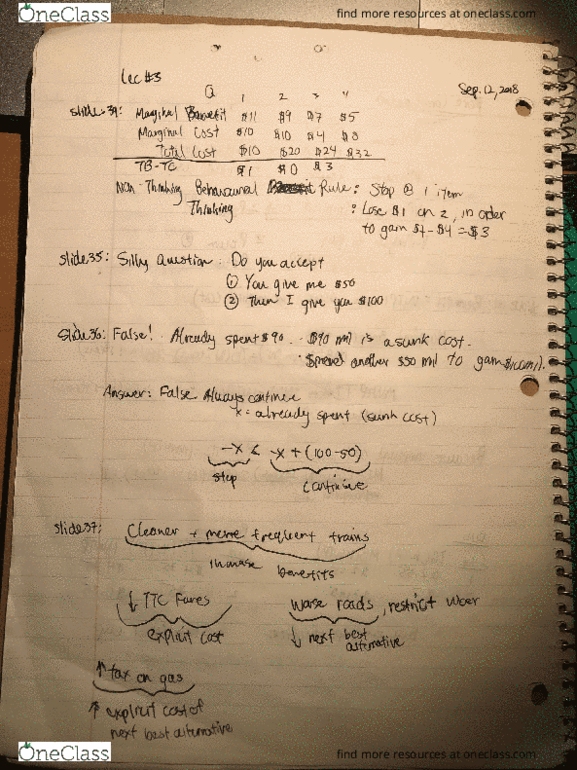 OneClass find more resources at oneclass.com
Lec #3
Sep. 12, 2018
Q 1 2 3 4
slide 34: Marginal Benefit $11 $9 $7 $5
Marginal Cost $10 $10 $4 $8
Total Cost $10 $20 $24 $32
TB-TC $1 $0 $3
Non-Thinking Behavioural Rule: Stop @ 1 item
Thinking : Lose $1 on 2, in order
to gain $7-$4=$3
slide 35: Silly Question: Do you accept
① You give me $50
② Then I give you $100
Slide 36: False! Already spent $90. $90 mil is a sunk cost.
Spend another $50 mil to gain $100mil.
Answer: False Always continue
x = already spent (sunk cost)
-x < -x + (100-50)
stop continue
slide 37: Cleaner + more frequent trains
increase benefits
↓ TTC Fares worse roads, restrict uber
explicit cost ↓ next best
alternative
↑ tax on gas
↑ explicit cost of
next best alternative
OneClass find more resources at oneclass.com